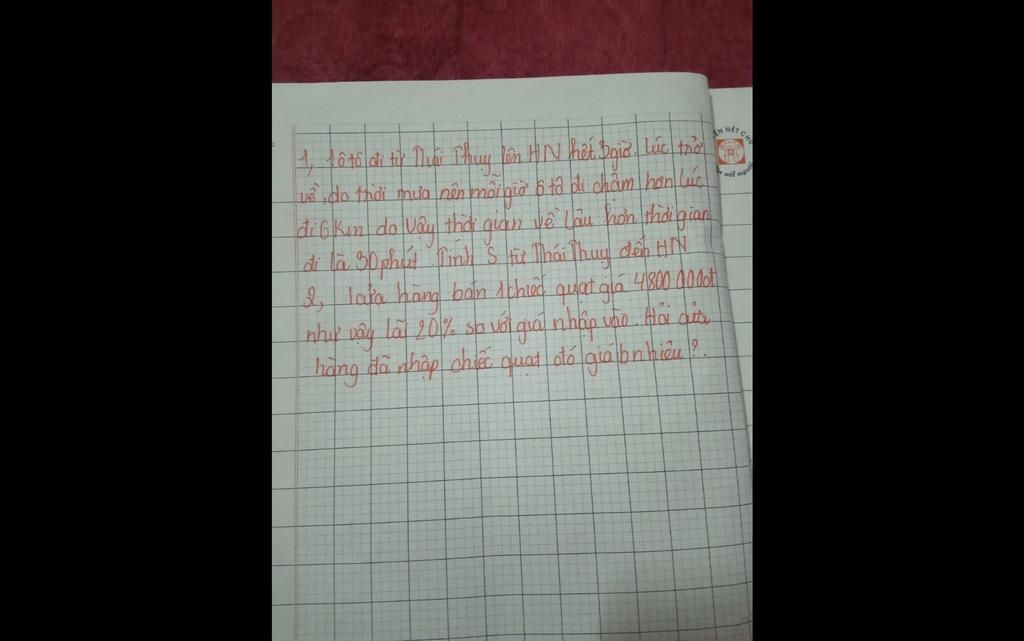 1, 1 ô tô đi từ Thái Thuỵ lên HN hết 3 giờ. Lúc trở
về, do trời mưa nên mỗi giờ ô tô đi chậm hơn lúc
đi 6 km do vậy thời gian về lâu hơn thời gian
đi là 30 phút Tính S từ Thái Thuỵ đến HN
2, 1 cửa hàng bán 1 chiếc quạt giá 4800 000đ
như vậy lãi 20% so với giá nhập vào. Hỏi cửa
hàng đã nhập chiếc quạt đó giá b nhiêu?.
NÉT CH
nết người